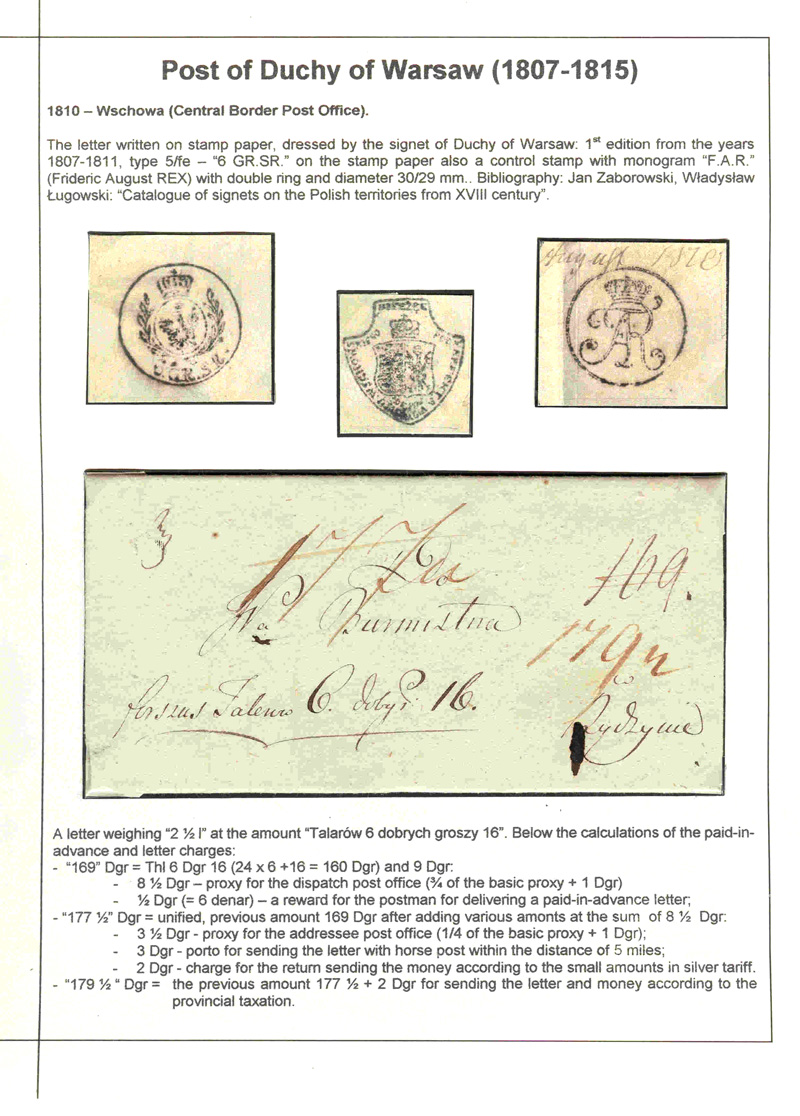 Post of Duchy of Warsaw (1807-1815)
1810 – Wschowa (Central Border Post Office).
The letter written on stamp paper, dressed by the signet of Duchy of Warsaw: 1st edition from the years
1807-1811, type 5/fe – “6 GR.SR.” on the stamp paper also a control stamp with monogram “F.A.R.”
(Frideric August REX) with double ring and diameter 30/29 mm.. Bibliography: Jan Zaborowski, Władysław
Ługowski: “Catalogue of signets on the Polish territories from XVIII century”.
August 1810
6.GR.SR.
177
169.
Burmistrza
179½
w
forszus Talerow 6. dobr 16.
Rydzynie
A letter weighing “2 ½ l” at the amount “Talarów 6 dobrych groszy 16”. Below the calculations of the paid-in-
advance and letter charges:
- “169” Dgr = Thl 6 Dgr 16 (24 x 6 +16 = 160 Dgr) and 9 Dgr:
- 8 ½ Dgr – proxy for the dispatch post office (¾ of the basic proxy + 1 Dgr)
- ½ Dgr (= 6 denar) – a reward for the postman for delivering a paid-in-advance letter;
- “177 ½” Dgr = unified, previous amount 169 Dgr after adding various amonts at the sum of 8 ½ Dgr:
- 3 ½ Dgr - proxy for the addressee post office (1/4 of the basic proxy + 1 Dgr);
- 3 Dgr - porto for sending the letter with horse post within the distance of 5 miles;
- 2 Dgr - charge for the return sending the money according to the small amounts in silver tariff.
- “179 ½ “ Dgr = the previous amount 177 ½ + 2 Dgr for sending the letter and money according to the
provincial taxation.